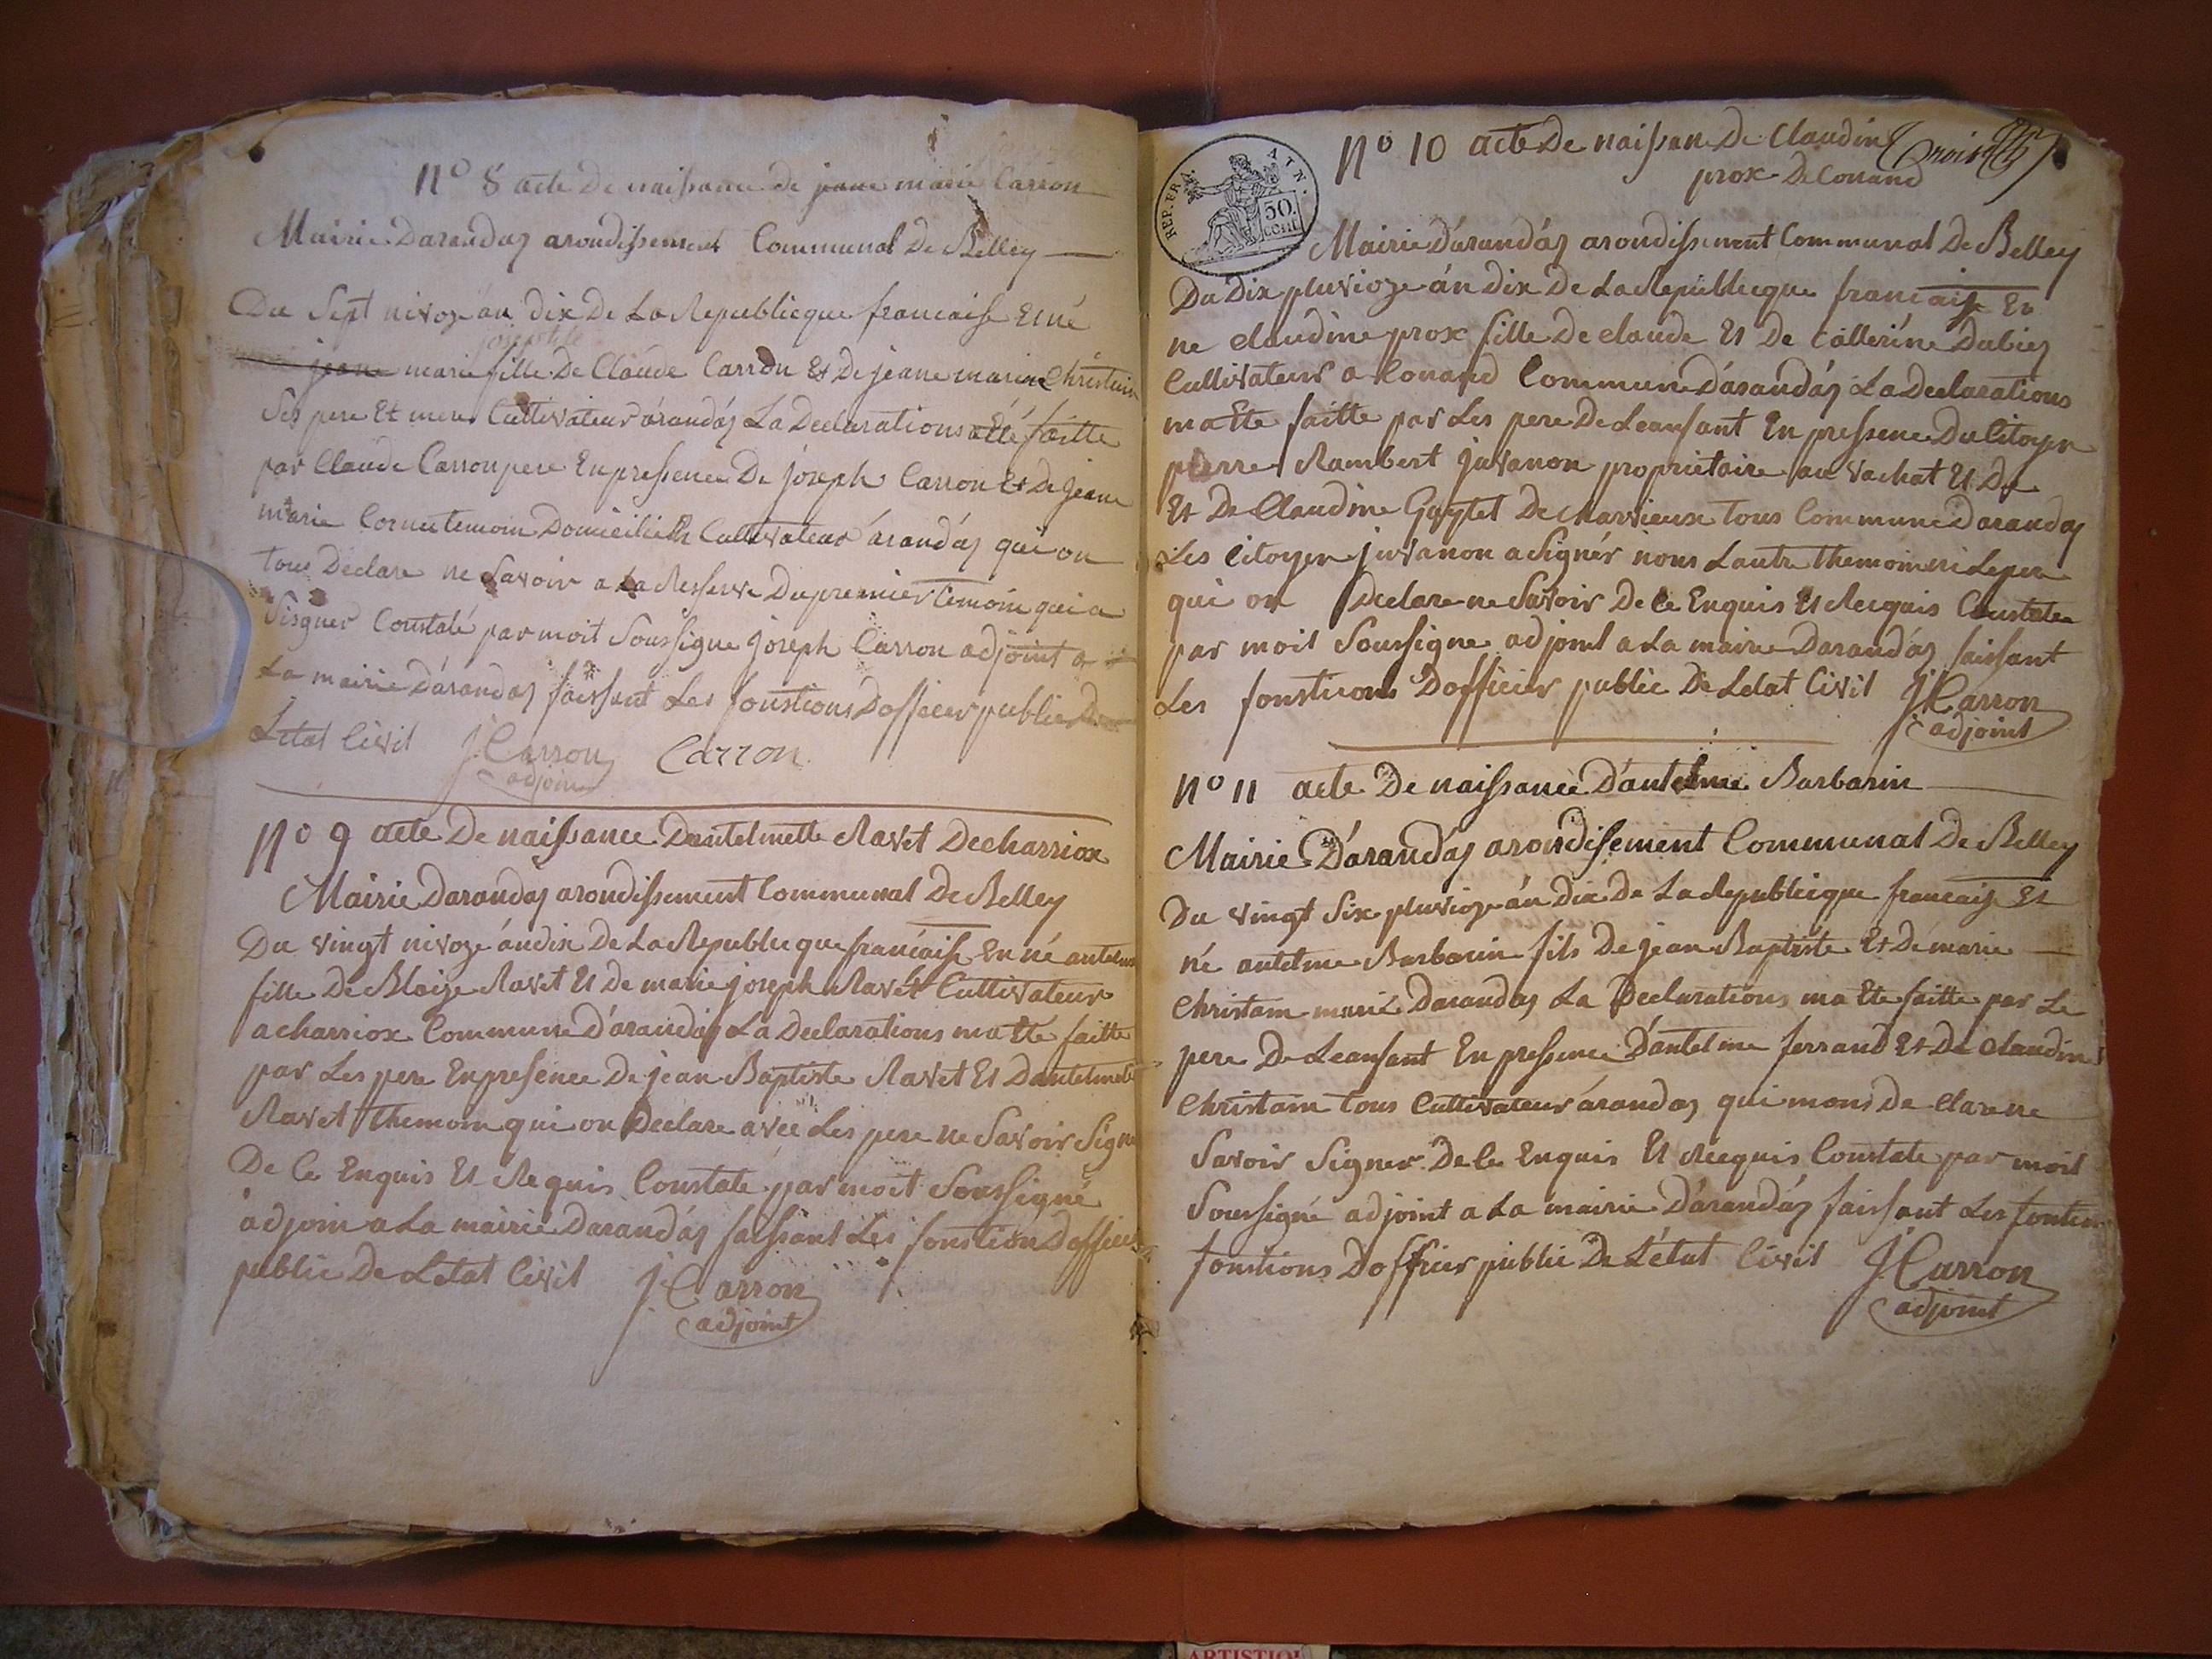 N° 8 acte de naissance de jeane marie Carron
Mairie Darandas arondissement Communal De Belley
Du Sept nivoze an dix De La Republicque francaise Et né
josephte
jeane marie fille De Claude Carron Et De jeane marie Christain
Ses pere Et mere Cultivateur árandás La Declarations a été faitte
par Claude Carron pere En pressence De joseph Carron Et De jeane
marie Cornu temoin Domicilies Cultivateur árandás qui on
tous Declare ne Savoir a La Resserve Du premier temoin qui a
Signer Constaté par moit Soussigne joseph Carron adjoint a
La mairie D'arandas faissant Les fonstions Dofficier public De
Letat Civil J Carron Carron
adjoint
N° 9 acte De naissance Dantelmette Ravet De charriox
Mairie Darandas arondissement Communal De Belley
Du vingt nivoze án dix De La Republicque francaise En né antelme
fille De Blaize Ravet Et De marie joseph Ravet Cultivateur
a charriox Commune D'arandas La Declarations ma Eté faitte
par Les pere En presence De jean Baptiste Ravet Et Dantelmette
Ravet themoin qui on Declare avec Les pere ne Savoir Signe
De Ce Enquis Et Requis Constaté par moit Soussigné
adjoin a La mairie Darandás faissant Les fonstion Dofficier
public De Letat Civil J Carron
adjoint
REP. FRA. ATN.
50.
cent
N° 10 acte De naissane De Claudine
prox De Conand
Mairie D'arandás arondissement Communal De Belley
Du Dix pluvioze án dix De La Republicque francaise Et
ne claudine prox fille De claude Et De Catterine Dubiez
Cultivateur a Conand Commune D'arandás La Declarations
ma Ete faitte par Les pere De Leansant En pressence Du Citoyen
pierre Rambert juvanon proprietaire au vachat Et De
Et De Claudine Guytet De charvieux tous Commune Darandas
Les Citoyen juvanon a Signér nons Lautre themoin ni Le pere
qui on Declare ne Savoir De Ce Enquis Et Recquis Constatée
par moit Soussigne adjoint a La mairie Darandás faissant
Les fonsticons Dofficier public De Letat Civil J Carron
adjoint
N° 11 acte De naissance D'antelme Barbarin
Mairie D'arandas arondisement Communal De Belley
Du vingt Six pluvioze án dix De La Republicque francaise Et
né antelme Barbarin fils De jean Baptiste Et De marie
Christain marié Darandas La Declarations ma Ete faitte par Le
pere De Leansant En pressence D'antelme ferrand Et De claudine
Christain tous Cultivateur árandas qui mons De clare ne
Savoir Signer De Ce Enquis Et Recquis Constaté par moit
Soussigné adjoint a La mairie D'arandás faissant Les fontion
fonstions Dofficier public De L'état Civil J Carron
adjoint